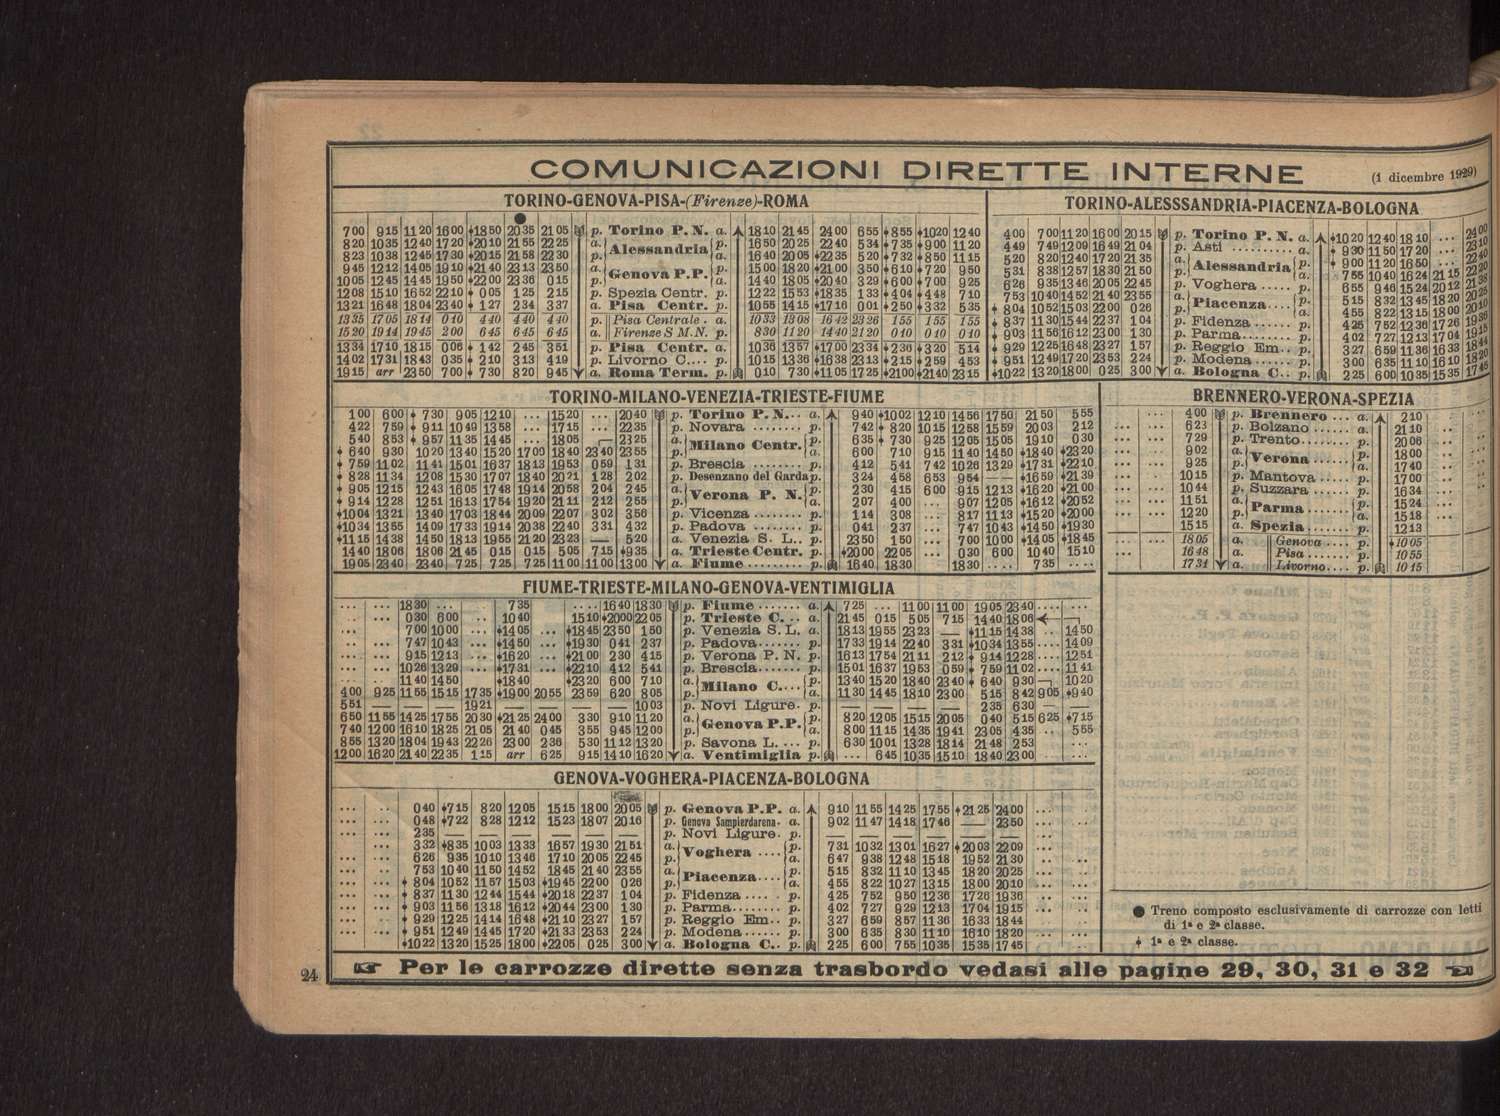 COMUNICAZIONI DIRETTE INTERNE
(1 dicembre 1929)
TORINO-GENOVA-PISA-(Firenze)-ROMA
7 00 9 15 11 20 16 00 18 50 20 35 21 05 p. Torino P. N. a. 18 10 21 45 24 00 6 55 8 55 10 20 12 40
8 20 10 35 12 40 17 20 20 10 21 55 22 25 a. Alessandria p. 16 50 20 25 22 40 5 34 7 35 9 00 11 20
8 23 10 38 12 45 17 30 20 15 21 58 22 30 p. a. 16 40 20 05 22 35 5 20 7 32 8 50 11 15
9 45 12 12 14 05 19 10 21 40 23 13 23 50 a. Genova P.P. p. 15 00 18 20 21 00 3 50 6 10 7 20 9 50
10 05 12 45 14 45 19 50 22 00 23 36 0 15 p. a. 14 40 18 05 20 40 3 29 6 00 7 00 9 25
12 08 15 10 16 52 22 10 0 05 1 25 2 15 p. Spezia Centr. p. 12 22 15 53 18 35 1 33 4 04 4 48 7 10
13 21 16 48 18 04 23 40 1 27 2 34 3 37 a. Pisa Centr. p. 10 55 14 15 17 16 0 01 2 50 3 32 5 35
13 35 17 05 18 14 0 10 4 40 4 40 4 40 p. Pisa Centrale . a. 10 33 13 08 16 42 23 26 1 55 1 55 1 55
15 20 19 14 19 45 2 00 6 45 6 45 6 45 a. Firenze S M.N. p. 8 30 11 20 14 40 21 20 0 10 0 10 0 10
13 34 17 10 18 15 0 06 1 42 2 45 3 51 p. Pisa Centr. a. 10 36 13 57 17 00 23 34 2 36 3 20 5 14
14 02 17 31 18 43 0 35 2 10 3 13 4 19 p. Livorno C... p. 10 15 13 36 16 38 23 13 2 15 2 59 4 53
19 15 arr 23 50 7 00 7 30 8 20 9 45 a. Roma Term. p. 0 10 7 30 11 05 17 25 21 00 21 40 23 15
TORINO-ALESSSANDRIA-PIACENZA-BOLOGNA
4 00 7 00 11 20 16 00 20 15 p. Torino P. N. a. 10 20 12 40 18 10 ... 24 00
4 49 7 49 12 09 16 49 21 04 p. Asti .......... p. 9 30 11 50 17 20 ... 23 10
5 20 8 20 12 40 17 20 21 35 a. Alessandria p. 9 00 11 20 16 50 ... 22 40
5 31 8 38 12 57 18 30 21 50 p. a. 7 55 10 40 16 24 21 15
6 26 9 35 13 46 20 05 22 45 p. Voghera ...... p. 6 55 9 46 15 24 20 12
7 53 10 40 14 52 21 40 23 55 a. Piacenza.... p. 5 15 8 32 13 45 18 20
8 04 10 52 15 03 22 00 0 26 p. a. 4 55 8 22 13 15 18 00
8 37 11 30 15 44 22 37 1 04 p. Fidenza ...... p. 4 25 7 52 12 36 17 26
9 03 11 56 16 12 23 00 1 30 p. Parma........ p. 4 02 7 27 12 13 17 04
9 29 12 25 16 48 23 27 1 57 p. Reggio Em.. p. 3 27 6 59 11 36 16 33
9 51 12 49 17 20 23 53 2 24 p. Modena ...... p. 3 00 6 35 11 10 16 10
10 22 13 20 18 00 0 25 3 00 a. Bologna C.. p. 2 25 6 00 10 35 15 35 17 45
TORINO-MILANO-VENEZIA-TRIESTE-FIUME
1 00 6 00 7 30 9 05 12 10 ... 15 20 ... 20 40 p. Torino P. N... a. 9 40 10 02 12 10 14 56 17 50 21 50 5 55
4 22 7 59 9 11 10 49 13 58 ... 17 15 ... 22 35 p. Novara ........ p. 7 42 8 20 10 15 12 58 15 59 20 03 2 12
5 40 8 53 9 57 11 35 14 45 ... 18 05 23 25 a. Milano Centr. p. 6 35 7 30 9 25 12 05 15 05 19 10 0 30
6 40 9 30 10 20 13 40 15 20 17 00 18 40 23 40 23 55 p. a. 6 00 7 10 9 15 11 40 14 50 18 40 23 20
7 59 11 02 11 41 15 01 16 37 18 13 19 53 0 59 1 31 p. Brescia ........ p. 4 12 5 41 7 42 10 26 13 29 17 31 22 10
8 28 11 34 12 08 15 30 17 07 18 40 20 21 1 28 2 02 p. Desenzano del Garda p. 3 24 4 58 6 53 9 54 — 16 59 21 39
9 05 12 15 12 43 16 05 17 48 19 14 20 58 2 04 2 45 a. Verona P. N. p. 2 30 4 15 6 00 9 15 12 13 16 20 21 00
9 14 12 28 12 51 16 13 17 54 19 20 21 11 2 12 2 55 p. a. 2 07 4 00 ... 9 07 12 05 16 12 20 52
10 04 13 21 13 40 17 03 18 44 20 09 22 07 3 02 3 56 p. Vicenza ........ p. 1 14 3 08 ... 8 17 11 13 15 20 20 00
10 34 13 55 14 09 17 33 19 14 20 38 22 40 3 31 4 32 p. Padova ........ p. 0 41 2 37 ... 7 47 10 43 14 50 19 30
11 15 14 38 14 50 18 13 19 55 21 20 23 23 — 5 20 a. Venezia S. L.. p. 23 50 1 50 ... 7 00 10 00 14 05 18 45
14 40 18 06 18 06 21 45 0 15 0 15 5 05 7 15 9 35 a. Trieste Centr. p. 20 00 22 05 ... 0 30 6 00 10 40 15 10
19 05 23 40 23 40 7 25 7 25 7 25 11 00 11 00 13 00 a. Fiume ......... p. 16 40 18 30 18 30 .... 7 35 ....
BRENNERO-VERONA-SPEZIA
... ... 4 00 p. Brennero ... a. 2 10
... ... 6 23 p. Bolzano ..... p. 21 10
... ... 7 29 p. Trento....... p. 20 06
9 02 a. Verona .... p. 18 00
9 25 p. a. 17 40
10 15 p. Mantova .... p. 17 00
10 44 p. Suzzara .... p. 16 34
11 51 a. Parma ...... p. 15 24
12 20 p. a. 15 18
15 15 a. Spezia....... p. 12 13
18 05 a. Genova .... p. 10 05
16 48 a. Pisa ....... p. 10 55
17 31 a. Livorno.... p. 10 15
FIUME-TRIESTE-MILANO-GENOVA-VENTIMIGLIA
... ... 18 30 ... 7 35 .... 16 40 18 30 p. Fiume ....... a. 7 25 ... 11 00 11 00 19 05 23 40 .... ...
0 30 6 00 .. 10 40 15 10 20 00 22 05 p. Trieste C. .. a. 21 45 0 15 5 05 7 15 14 40 18 06
7 00 10 00 ... 14 05 ... 18 45 23 50 1 50 p. Venezia S. L. a. 18 13 19 55 23 23 — 11 15 14 38 .. 14 50
7 47 10 43 ... 14 50 ... 19 30 0 41 2 37 p. Padova....... p. 17 33 19 14 22 40 3 31 10 34 13 55 .... 14 09
9 15 12 13 ... 16 20 ... 21 00 2 30 4 15 p. Verona P. N. p. 16 13 17 54 21 11 2 12 9 14 12 28 ... 12 51
10 26 13 29 ... 17 31 ... 22 10 4 12 5 41 p. Brescia....... p. 15 01 16 37 19 53 0 59 7 59 11 02 .... 11 41
11 40 14 50 18 40 23 20 6 00 7 10 a. Milano C.... p. 13 40 15 20 18 40 23 40 6 40 9 30 10 20
4 00 9 25 11 55 15 15 17 35 19 00 20 55 23 59 6 20 8 05 p. a. 11 30 14 45 18 10 23 00 5 15 8 42 9 05 9 40
5 51 — — — 19 21 — — — — 10 03 p. Novi Ligure. p. — — — — 2 35 6 30 — —
6 50 11 55 14 25 17 55 20 30 21 25 24 00 3 30 9 10 11 20 a. Genova P.P. p. 8 20 12 05 15 15 20 05 0 40 5 15 6 25 7 15
7 40 12 00 16 10 18 25 21 05 21 40 0 45 3 55 9 45 12 00 p. a. 8 00 11 15 14 35 19 41 23 05 4 35 .. 5 55
8 55 13 20 18 04 19 43 22 26 23 00 2 36 5 30 11 12 13 20 p. Savona L. ... p. 6 30 10 01 13 28 18 14 21 48 2 53 ...
12 00 16 20 21 40 22 35 1 15 arr 6 25 9 15 14 10 16 20 a. Ventimiglia p. ... 6 45 10 35 15 10 18 40 23 00 ...
GENOVA-VOGHERA-PIACENZA-BOLOGNA
... .. 0 40 7 15 8 20 12 05 15 15 18 00 20 05 p. Genova P.P. a. 9 10 11 55 14 25 17 55 21 25 24 00 ...
... ... 0 48 7 22 8 28 12 12 15 23 18 07 20 16 p. Genova Sampierdarena. a. 9 02 11 47 14 18 17 46 — 23 50 ...
... ... 2 35 — — — — — — p. Novi Ligure. p. — — — — — — ...
3 32 8 35 10 03 13 33 16 57 19 30 21 51 a. Voghera .... p. 7 31 10 32 13 01 16 27 20 03 22 09
... ... 6 26 9 35 10 10 13 46 17 10 20 05 22 45 p. a. 6 47 9 38 12 48 15 18 19 52 21 30 .. ..
... ... 7 53 10 40 11 50 14 52 18 45 21 40 23 55 a. Piacenza.... p. 5 15 8 32 11 10 13 45 18 20 20 25 ... ..
... ... 8 04 10 52 11 57 15 03 19 45 22 00 0 26 p. a. 4 55 8 22 10 27 13 15 18 00 20 10 ... ..
... ... 8 37 11 30 12 44 15 44 20 18 22 37 1 04 p. Fidenza .... . p. 4 25 7 52 9 50 12 36 17 26 19 36 .. ..
... ... 9 03 11 56 13 18 16 12 20 44 23 00 1 30 p. Parma........ p. 4 02 7 27 9 29 12 13 17 04 19 15 .. ...
... ... 9 29 12 25 14 14 16 48 21 10 23 27 1 57 p. Reggio Em.. p. 3 27 6 59 8 57 11 36 16 33 18 44 .. ..
... ... 9 51 12 49 14 45 17 20 21 33 23 53 2 24 p. Modena...... p. 3 00 6 35 8 30 11 10 16 10 18 20 ... ...
10 22 13 20 15 25 18 00 22 05 0 25 3 00 a. Bologna C.. p. 2 25 6 00 7 55 10 35 15 35 17 45 ...
● Treno composto esclusivamente di carrozze con letti
di 1ª e 2ª classe.
1ª e 2ª classe.
24
☛ Per le carrozze dirette senza trasbordo vedasi alle pagine 29, 30, 31 e 32 ☚